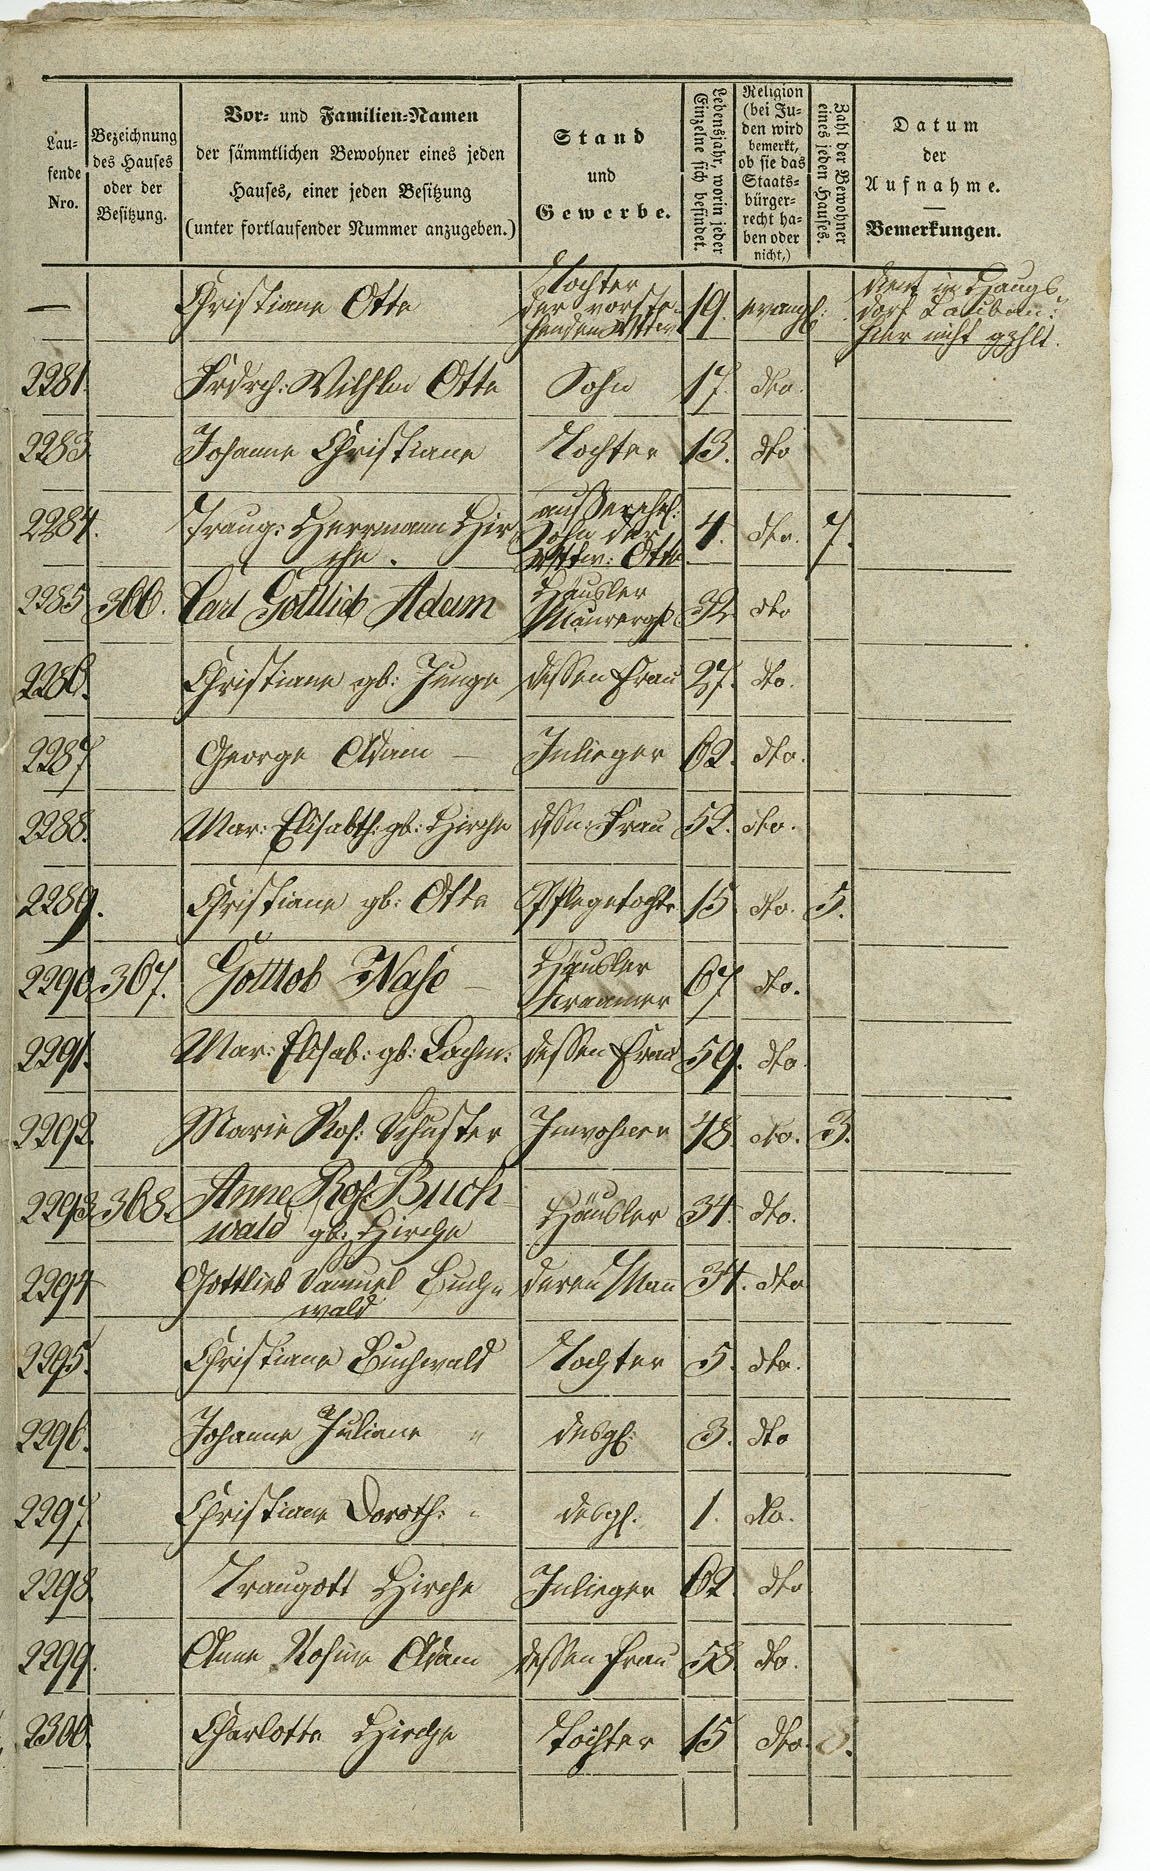 Lau-
fende
Nro.
Bezeichnung
des Hauses
oder der
Besitzung.
Vor- und Familien-Namen
der sämmtlichen Bewohner eines jeden
Hauses, einer jeden Besitzung
(unter fortlaufender Nummer anzugeben.)
Stand
und
Gewerbe.
Lebensjahr, worin jeder
Einzelne sich befindet.
Religion
(bei Ju-
den wird
bemerkt,
ob sie das
Staats-
bürger-
recht ha-
ben oder
nicht,)
Zahl der Bewohner
eines jeden Hauses.
Datum
der
Aufnahme.
Bemerkungen.
— Christiane Otte Tochter 19. evangl:
der vorste-
henden Wttw
dient in Haugs
dorf Lauban:
hier nicht gzhlt.
2281. Frdrch: Wilhlm Otte Sohn 17. dto.
2283. Johanne Christiane Tochter 13. dto
2284. Traug: Herrmann Hir außerehel: 4. dto. 7.
che. Sohn der
Wttw: Otte.
2285 366. Carl Gottlieb Adam Häusler 32 dto
Maurergs
2286. Christiane gb: Junge dessen Frau 27. dto.
2287 George Adam — Inlieger 62. dto.
2288. Mar: Elisabth: gb: Hirche dssn: Frau 52. dto.
2289. Christiane gb: Otte Pflegetochtr 15 dto. 5.
2290. 367. Gottlob Nase — Häusler 67 dto.
Kraamer
2291. Mar: Elisab: gb: Lachm: dessen Frau 59. dto.
2292. Marie Ros: Schuster Inwohner 48. dto. 3.
2293 368. Anne Ros. Buch Häusler 34. dto.
wald gb: Hirche
2294 Gottlieb Samuel Buch= deren Man 34. dto
wald
2295. Christiane Buchwald Tochter 5. dto.
2296. Johanne Juliane " desgl: 3. dto
2297. Christiane Doroth: " desgl. 1. dto.
2298. Traugott Hirche Inlieger 62. dto
2299. Anne Rosine Adam dessen Frau 58 dto.
2300. Charlotte Hirche Tochter 15 dto. 8.